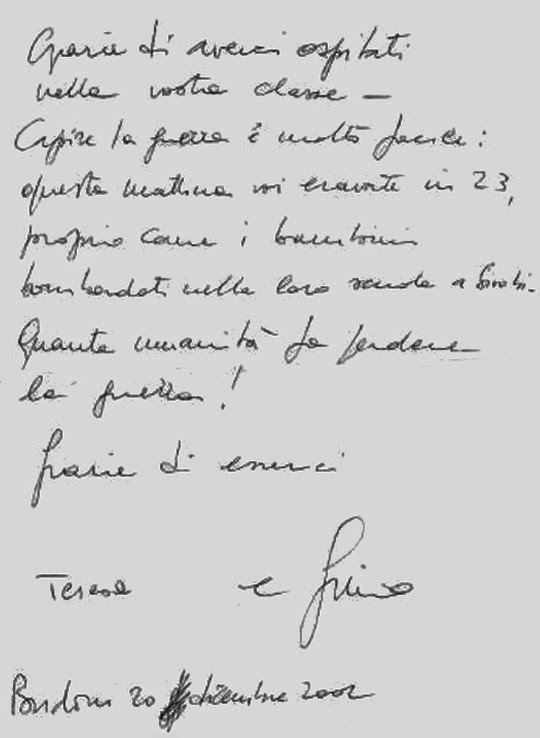 Grazie di averci ospitati
nella vostra classe –
Capire la guerra è molto facile:
questa mattina voi eravate in 23,
proprio come i bambini
bombardati nella loro scuola a
Quanta umanità fa perdere
la guerra!
grazie di esserci
Teresa e Gino
20 dicembre 2002